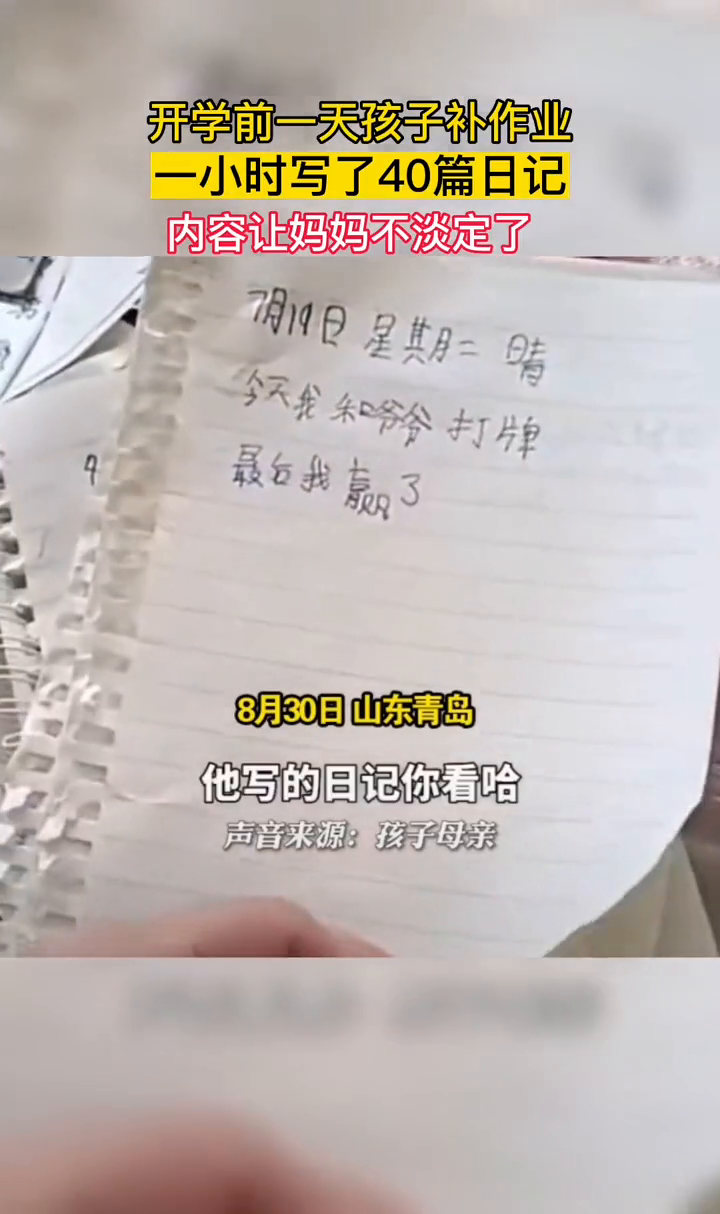 开学前一天孩子补作业
一小时写了40篇日记
内容让妈妈不淡定了
7月19日 星期二 晴
今天我和爷爷打牌
最后我赢了
8月30日 山东青岛
他写的日记你看哈
声音来源：孩子母亲